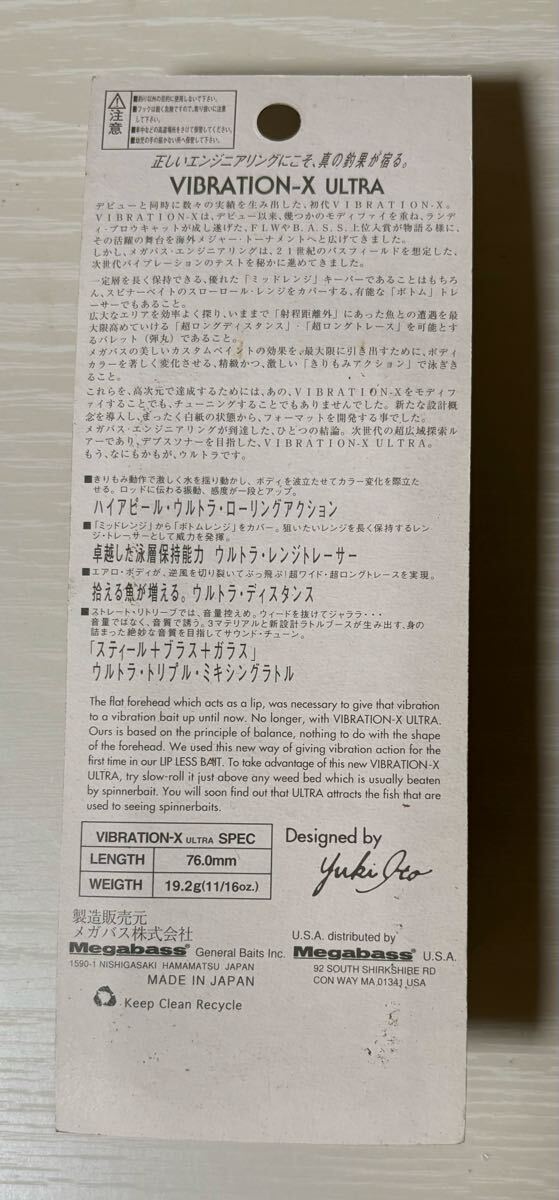 注意
■釣り以外の目的に使用しないで下さい。
■フックは鋭く危険ですので、取り扱いに注意
して下さい。
■車中などの高温場所をさけて保管してください。
■幼児の手の届かない所へ保管して下さい。
正しいエンジニアリングにこそ、真の釣果が宿る。
VIBRATION-X ULTRA
デビューと同時に数々の実績を生み出した、初代VIBRATION-X。
VIBRATION-Xは、デビュー以来、幾つかのモディファイを重ね、ランディ
・ブロウキャットが成し遂げた、FLWやB.A.S.S.上位入賞が物語る様に、
その活躍の舞台を海外メジャー・トーナメントへと広げてきました。
しかし、メガバス・エンジニアリングは、21世紀のバスフィールドを想定した、
次世代バイブレーションのテストを秘かに進めてきました。
一定層を長く保持できる、優れた「ミッドレンジ」キーパーであることはもちろ
ん、スピナーベイトのスローロール・レンジをカバーする、有能な「ボトム」トレ
ーサーでもあること。
広大なエリアを効率よく探り、いままで「射程距離外」にあった魚との遭遇を最
大限高めていける「超ロングディスタンス」・「超ロングトレース」を可能とす
るバレット（弾丸）であること。
メガバスの美しいカスタムペイントの効果を、最大限に引き出すために、ボディ
カラーを著しく変化させる、精緻かつ、激しい「きりもみアクション」で泳ぎき
ること。
これらを、高次元で達成するためには、あの、VIBRATION-Xをモディフ
ァイすることでも、チューニングすることでもありませんでした。新たな設計概
念を導入し、まったく白紙の状態から、フォーマットを開発する事でした。
メガバス・エンジニアリングが到達した、ひとつの結論。次世代の超広域探索ル
アーであり、デプスソナーを目指した、VIBRATION-X ULTRA。
もう、なにもかもが、ウルトラです。
■きりもみ動作で激しく水を揺り動かし、ボディを波立たせてカラー変化を際立た
せる。ロッドに伝わる振動、感度が一段とアップ。
ハイアピール・ウルトラ・ローリングアクション
■「ミッドレンジ」から「ボトムレンジ」をカバー。狙いたいレンジを長く保持するレン
ジ・トレーサーとして威力を発揮。
卓越した泳層保持能力 ウルトラ・レンジトレーサー
■エアロ・ボディが、逆風を切り裂いてぶっ飛ぶ！超ワイド・超ロングトレースを実現。
拾える魚が増える。ウルトラ・ディスタンス
■ストレート・リトリーブでは、音量控えめ。ウィードを抜けてジャララ・・・
音量ではなく、音質で誘う。3マテリアルと新設計ラトルブースが生み出す、身の
詰まった絶妙な音質を目指してサウンド・チューン。
「スティール＋ブラス＋ガラス」
ウルトラ・トリプル・ミキシングラトル
The flat forehead which acts as a lip, was necessary to give that vibration
to a vibration bait up until now. No longer, with VIBRATION-X ULTRA.
Ours is based on the principle of balance, nothing to do with the shape
of the forehead. We used this new way of giving vibration action for the
first time in our LIP LESS BAIT. To take advantage of this new VIBRATION-X
ULTRA, try slow-roll it just above any weed bed which is usually beaten
by spinnerbait. You will soon find out that ULTRA attracts the fish that are
used to seeing spinnerbaits.
VIBRATION-X ULTRA SPEC
LENGTH 76.0mm
WEIGTH 19.2g(11/16oz.)
Designed by
Yuki Ito
製造販売元
メガバス株式会社
Megabass® General Baits Inc.
1590-1 NISHIGASAKI HAMAMATSU JAPAN
MADE IN JAPAN
Keep Clean Recycle
U.S.A. distributed by
Megabass® U.S.A.
92 SOUTH SHIRKSHIBE RD
CON WAY MA 01341 USA